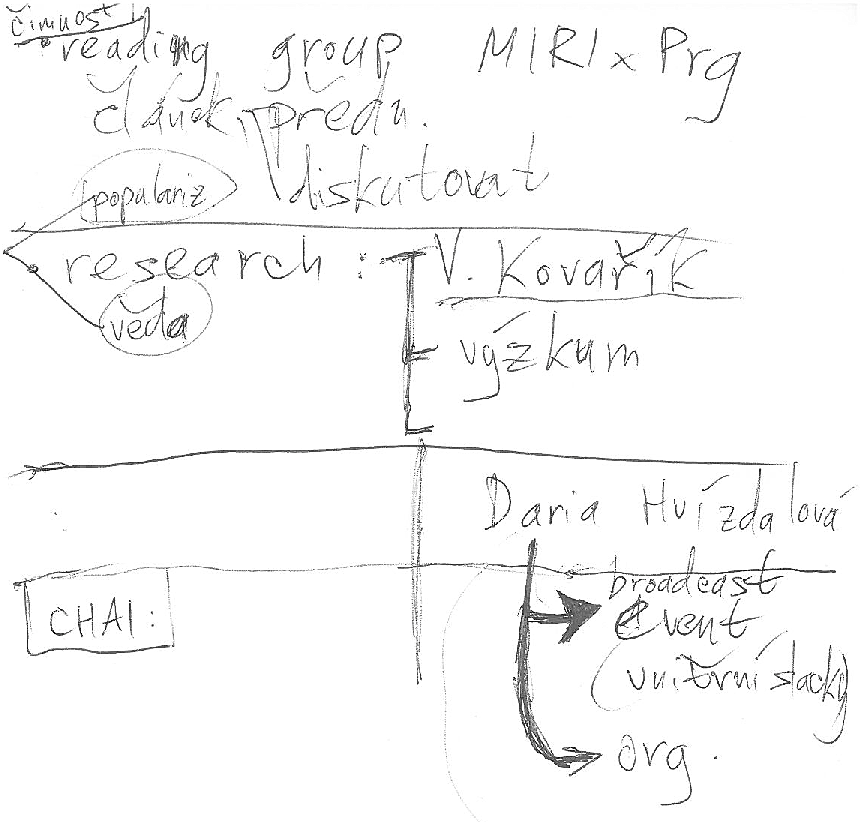 činnost
reading group MIRIx Prg
článek, předn.
diskutovat
populariz
research : V. Kovařík
věda
výzkum
Daria Hvízdalová
broadcast
event
(vnitřní slacky)
org.
CHAI :